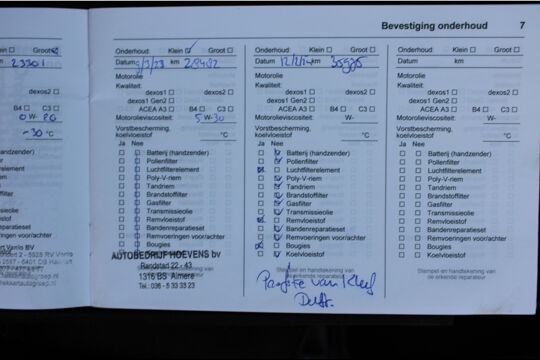 Bevestiging onderhoud 7
Klein Groot
23301
dexos2
B4 C3
0 W-
-30 °C
(handzender)
Onderhoud: Klein Groot
Datum 9/3/23 km
Motorolie
Kwaliteit:
dexos1 dexos2
dexos1 Gen2
ACEA A3 B4 C3
Motorolieviscositeit: 5 W-30
Vorstbescherming,
koelvloeistof °C
Ja Nee
Batterij (handzender)
Pollenfilter
Luchtfilterelement
Poly-V-riem
Tandriem
Brandstoffilter
Gasfilter
Transmissieolie
Remvloeistof
Bandenreparatieset
Remvoeringen voor/achter
Bougies
AUTOBEDRIJF HOEVENS bv
Randstad 22 - 43
1316 BS Almere
Tel.: 036 - 5 33 33 23
Onderhoud: Klein Groot
Datum km
Motorolie
Kwaliteit:
dexos1 dexos2
dexos1 Gen2
ACEA A3 B4 C3
Motorolieviscositeit: W-
Vorstbescherming,
koelvloeistof °C
Ja Nee
Batterij (handzender)
Pollenfilter
Luchtfilterelement
Poly-V-riem
Tandriem
Brandstoffilter
Gasfilter
Transmissieolie
Remvloeistof
Bandenreparatieset
Remvoeringen voor/achter
Bougies
Koelvloeistof
Stempel en handtekening van
de erkende reparateur
van Kleef
Delft.
Onderhoud: Klein Groot
Datum km
Motorolie
Kwaliteit:
dexos1 dexos2
dexos1 Gen2
ACEA A3 B4 C3
Motorolieviscositeit: W-
Vorstbescherming,
koelvloeistof °C
Ja Nee
Batterij (handzender)
Pollenfilter
Luchtfilterelement
Poly-V-riem
Tandriem
Brandstoffilter
Gasfilter
Transmissieolie
Remvloeistof
Bandenreparatieset
Remvoeringen voor/achter
Bougies
Koelvloeistof
Stempel en handtekening van
de erkende reparateur